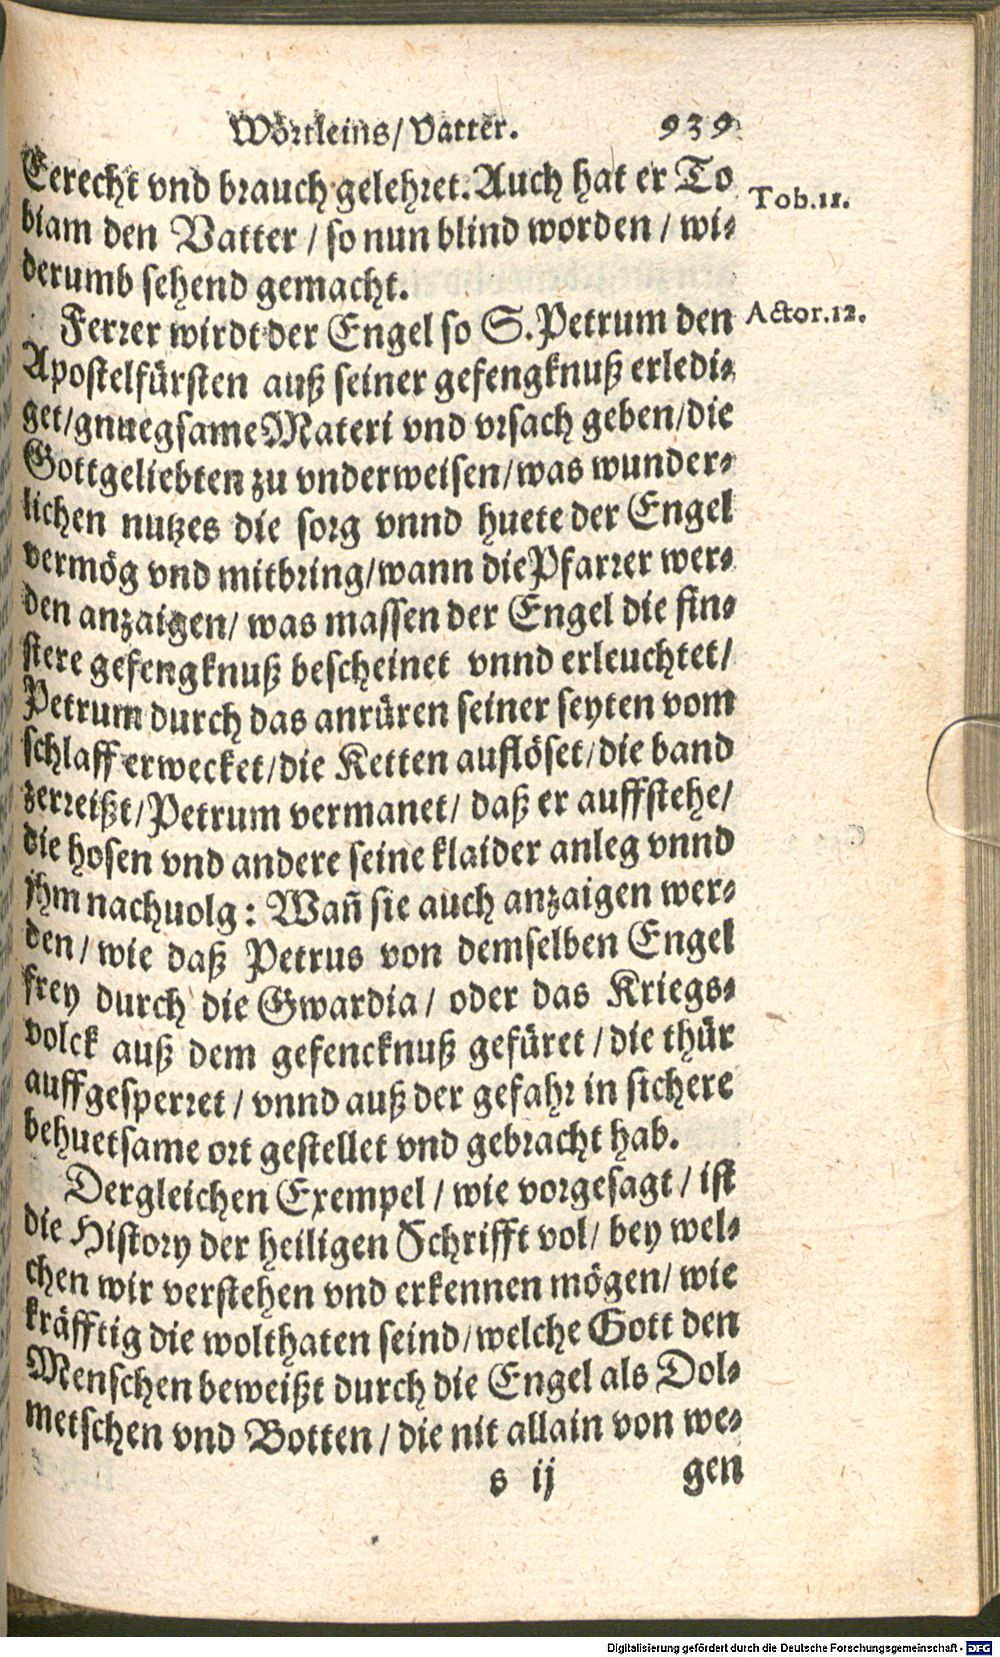 Wörtleins/Vatter. 939
Eerecht vnd brauch gelehret. Auch hat er To
biam den Vatter / so nun blind worden / wi-
derumb sehend gemacht.
Tob.11.
Ferrer wirdt der Engel so S. Petrum den
Actor.12.
Apostelfürsten auß seiner gefengknuß erledi-
get/gnuegsame Materi vnd vrsach geben/die
Gottgeliebten zu vnderweisen/was wunder-
lichen nutzes die sorg vnnd huete der Engel
vermög vnd mitbring/wann die Pfarrer wer-
den anzaigen/ was massen der Engel die fin-
stere gefengknuß bescheinet vnnd erleuchtet/
Petrum durch das anrüren seiner seyten vom
schlaff erwecket/die Ketten auflöset/die band
zerreißt/Petrum vermanet/ daß er auffstehe/
die hosen vnd andere seine klaider anleg vnnd
jhm nachuolg: Wañ sie auch anzaigen wer-
den/ wie daß Petrus von demselben Engel
frey durch die Gwardia/ oder das Kriegs-
volck auß dem gefencknuß gefüret / die thür
auffgesperret / vnnd auß der gefahr in sichere
behuetsame ort gestellet vnd gebracht hab.
Dergleichen Exempel / wie vorgesagt / ist
die History der heiligen Schrifft vol/ bey wel-
chen wir verstehen vnd erkennen mögen/ wie
kräfftig die wolthaten seind/welche Gott den
Menschen beweißt durch die Engel als Dol-
metschen vnd Botten / die nit allain von we-
s ij gen
Digitalisierung gefördert durch die Deutsche Forschungsgemeinschaft - DFG